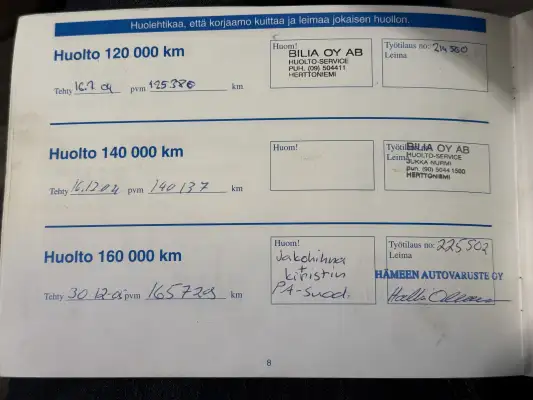 Huolehtikaa, että korjaamo kuittaa ja leimaa jokaisen huollon.
Huolto 120 000 km
Tehty 16.2 04 pvm 125380 km
Huom!
BILIA OY AB
HUOLTO-SERVICE
PUH. (09) 504411
HERTTONIEMI
Työtilaus no: 214560
Leima
Huolto 140 000 km
Tehty 16.12.04 pvm 140137 km
Huom!
Työtilaus
Leima
BILIA OY AB
HUOLTO-SERVICE
JUKKA NURMI
puh. (90) 5044 1500
HERTTONIEMI
Huolto 160 000 km
Tehty 30.12.0 pvm 165729 km
Huom!
Jakohihna
+
kiristin
PA-suod.
Työtilaus no: 225502
Leima
HÄMEEN AUTOVARUSTE OY
8